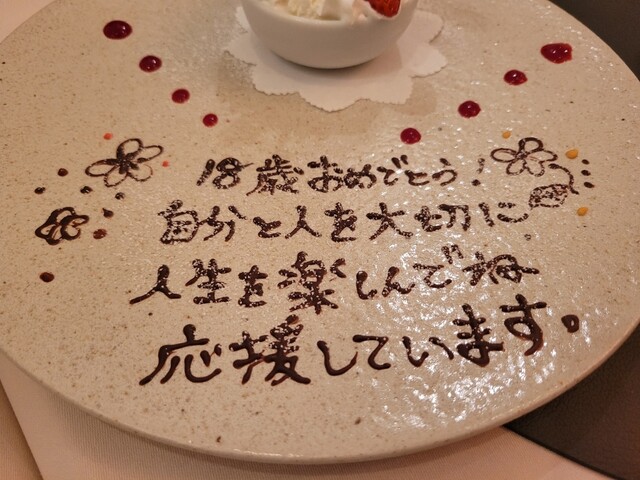 18歳おめでとう!
自分と人を大切に
人生を楽しんでね
応援しています。